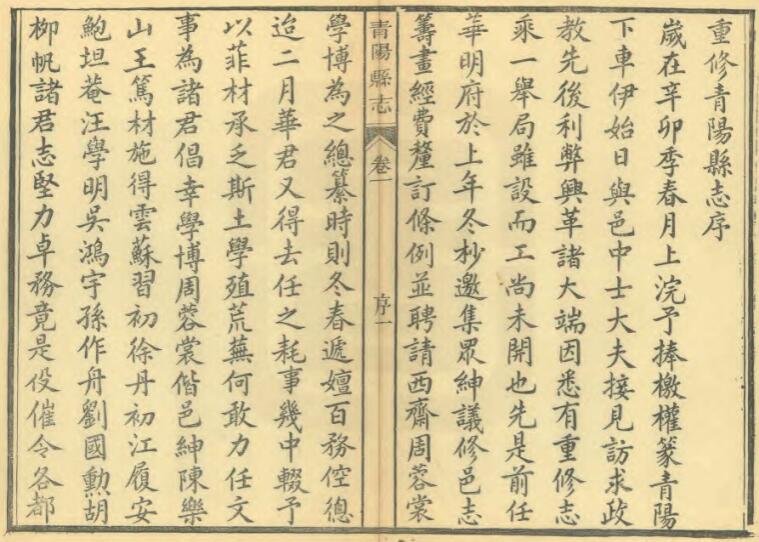 重修青陽縣志序
歲在辛卯季春月上浣予捧檄權篆青陽
下車伊始日與邑中士大夫接見訪求政
教先後利弊興革諸大端因悉有重修志
乘一舉局雖設而工尚未開也先是前任
華明府於上年冬杪邀集眾紳議修邑志
籌畫經費釐訂條例並聘請西齋周蓉裳
青陽縣志
卷一
序一
學博為之總纂時則冬春遞嬗百務倥傯
迨二月華君又得去任之耗事幾中輟予
以菲材承乏斯土學殖荒蕪何敢力任文
事為諸君倡幸學博周蓉裳偕邑紳陳樂
山王篤材施得雲蘇習初徐丹初江履安
鮑坦菴汪學明吳鴻宇孫作舟劉國勲胡
柳帆諸君志堅力卓務竟是役催令各都